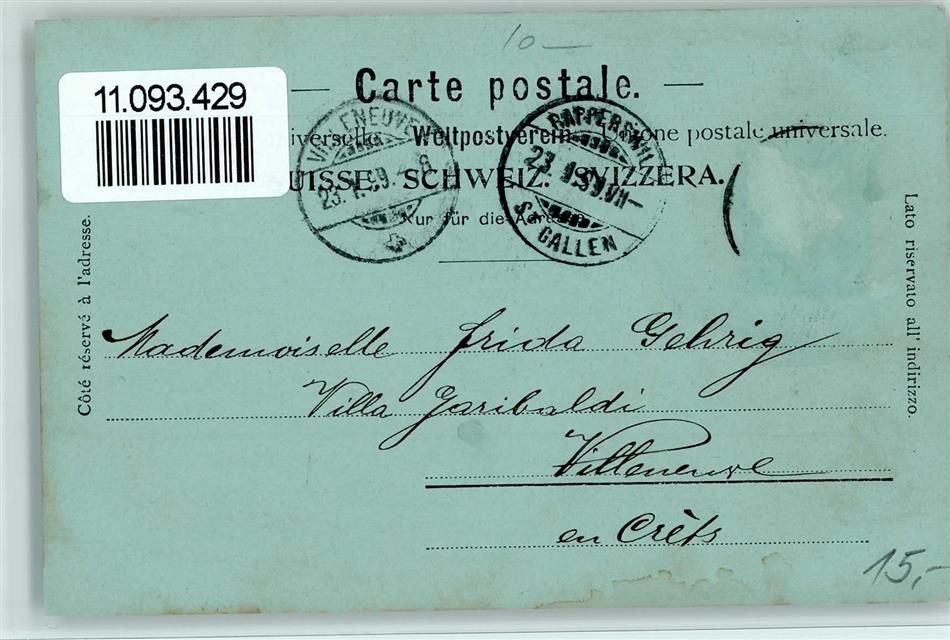 10 —
— Carte postale. —
11.093.429
iverselle. Weltpostverein. Unione postale universale.
UISSE. SCHWEIZ. SVIZZERA.
Nur für die Adresse
VILLENEUVE
23. I. 99.
RAPPERSWIL
23. I. 99. VII—
ST GALLEN
Côté réservé à l'adresse.
Lato riservato all' indirizzo.
Mademoiselle Frida Gehrig
Villa Garibaldi
Villeneuve
en Crêts
15,-